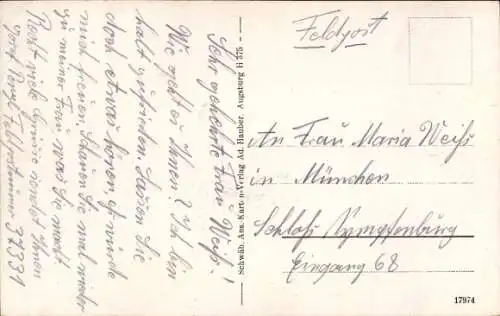 Sehr geehrte Frau Weiß!
Wie geht es Ihnen? Ich bin
halt zufrieden. Lassen Sie
doch etwas hören es würde
mich freuen. Schauen Sie mal wieder
zu meiner Frau, was sie macht
Recht viele Grüsse sendet Ihnen
Josef Feldpostnummer 37331
Schwäb. Ans.-Kart.-Verlag Ad. Hauber, Augsburg H 375
Feldpost
An Frau Maria Weiß
in München
Schloß Nymphenburg
Eingang 68
17974